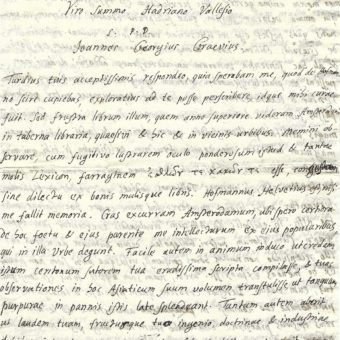 Viro Summo, Hadriano Vallesio
S. P. D.
Joannes Georgius Graevius.
Tardius tuis acceptissimis respondeo, quia sperabam me, quod de
no scire cupiebas, exploratius ad te posse perscribere idque mihi curae
fuit. Sed frustra librum illum, quem anno superiore videram Amstelo
in taberna libraria, quaesivi & hic & in vicinis urbibus. Memini ob
servare, cum fugitivo lustrarem oculo ponderosum istud & tantae
molis Lexicon, farraginem ἐσθλῶν τε κακῶν τε esse,
sine dilectu ex bonis malisque libris. Hofmannus Helvetius est, nisi
me fallit memoria. Cras excurram Amstelodamum, ubi spero certiora
de hoc foetu & ejus parente me intellecturum ex ejus popularibus
qui in illa Urbe degunt. Facile autem in animum induco uterdum
ipsum centonum sutorem tua eruditissima scripta compilasse, & tuas
observationes in hoc Asiaticum suum volumen transtulisse, ut tanquam
purpurae in pannis istis late splendeant. Tantum autem abest
ut laudem tuam, fructumque tuo ingenio, doctrinae & industriae